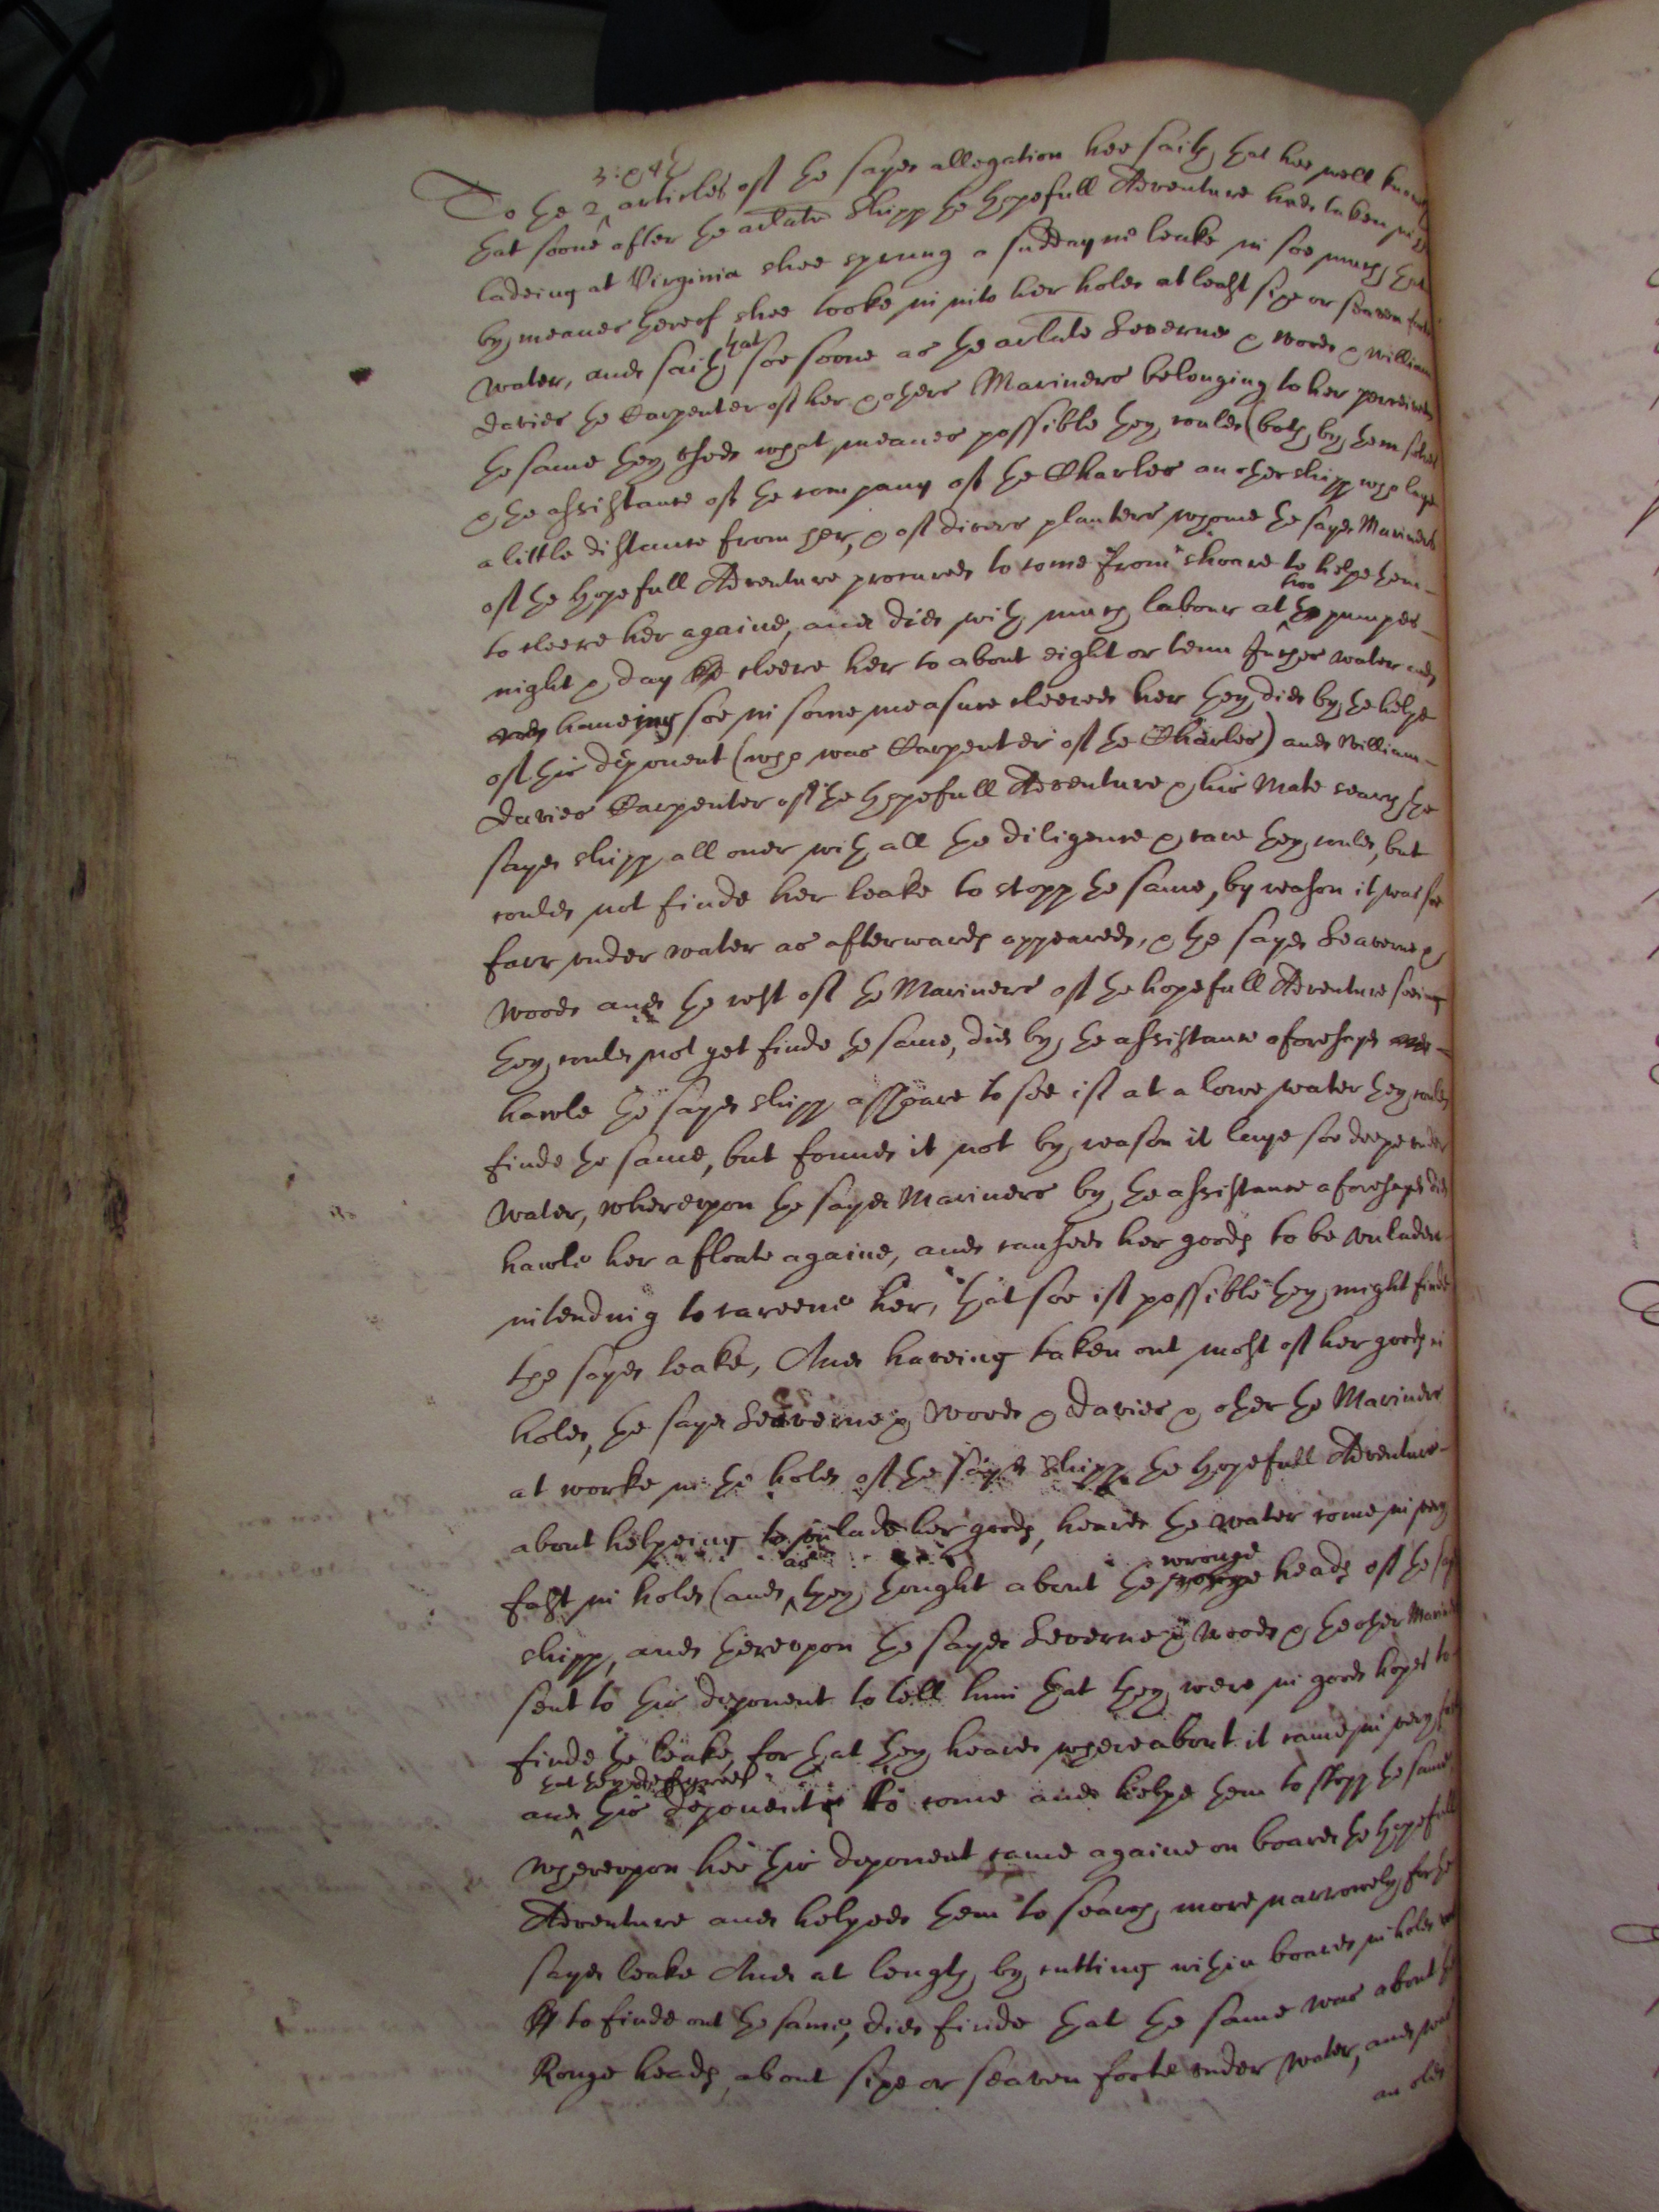 3: & 4th
To the 2 articles of the sayd allegation hee saith that hee well knoweth
that soone after the arlate shipp the Hopefull Adventure had taken in
ladeing at Virginia shee sprung a suddayne leake in soe much that
by meanes thereof shee tooke in into her hold at least sixe or seaven foote
water, and saith that soe soone as the arlate Severne & Wood & William
Davies the Carpenter of her & others Mariners belonging to her perceived
the same they used what meanes possible they could (both by them selves
& the assistance of the company of the Charles an other shipp who laye
a little distance from her, & of divers planters whome the sayd Mariners
of the Hopefull Adventure procured to come from shoare to helpe them
to cleere her againe, and did with much labour at the two pumpes
night & day cleere her to about eight or tenn Inches water and
haveing soe in some measure cleered her they did by the helpe
of this deponent (who was Carpenter of the Charles) and William
Davies Carpenter of the Hopefull Adventure & his Mate search the
sayd shipp all over with all the diligence & care they could, but
could not finde her leake to stopp the same, by reason it was soe
farr under water as afterwards appeared, & the sayd Seaverne &
Wood and the rest of the Mariners of the hopefull Adventure seeing
they could not yet finde the same, did by the assistance aforesayd
hawle the sayd shipp asshoare to see if at a lowe water they could
finde the same, but found it not by reason it laye soe deepe under
water, whereupon the sayd Mariners by the assistance aforesayd did
hawle her afloate againe, and caused her goods to be unladen
intending to careene her, that soe if possible they might finde
the sayd leake, And haveing taken out most of her goods in
hold, the sayd Seaverne & Wood & Davies & other the Mariners
at worke in the hold of the sayd shipp the Hopefull Adventure
about helpeing to unlade her goods, heard the water come in very
fast in hold (and as they thought about the wronge heads of the sayd
shipp, and thereupon the sayd Severne & Wood & the other Mariners
sent to this deponent to tell him that they were in good hopes to
finde the leake, for that they heard whereabout it came in very fast
and that they desyred this deponent to come and helpe them to stopp the same
Whereupon hee this deponent came againe on board the Hopefull
Adventure and helped them to search more narrowely for the
sayd leake And at length by cutting within board in hold
to finde out the same, did finde that the same was about the
Ronge heads about sixe or seaven foote under water, and was
an old